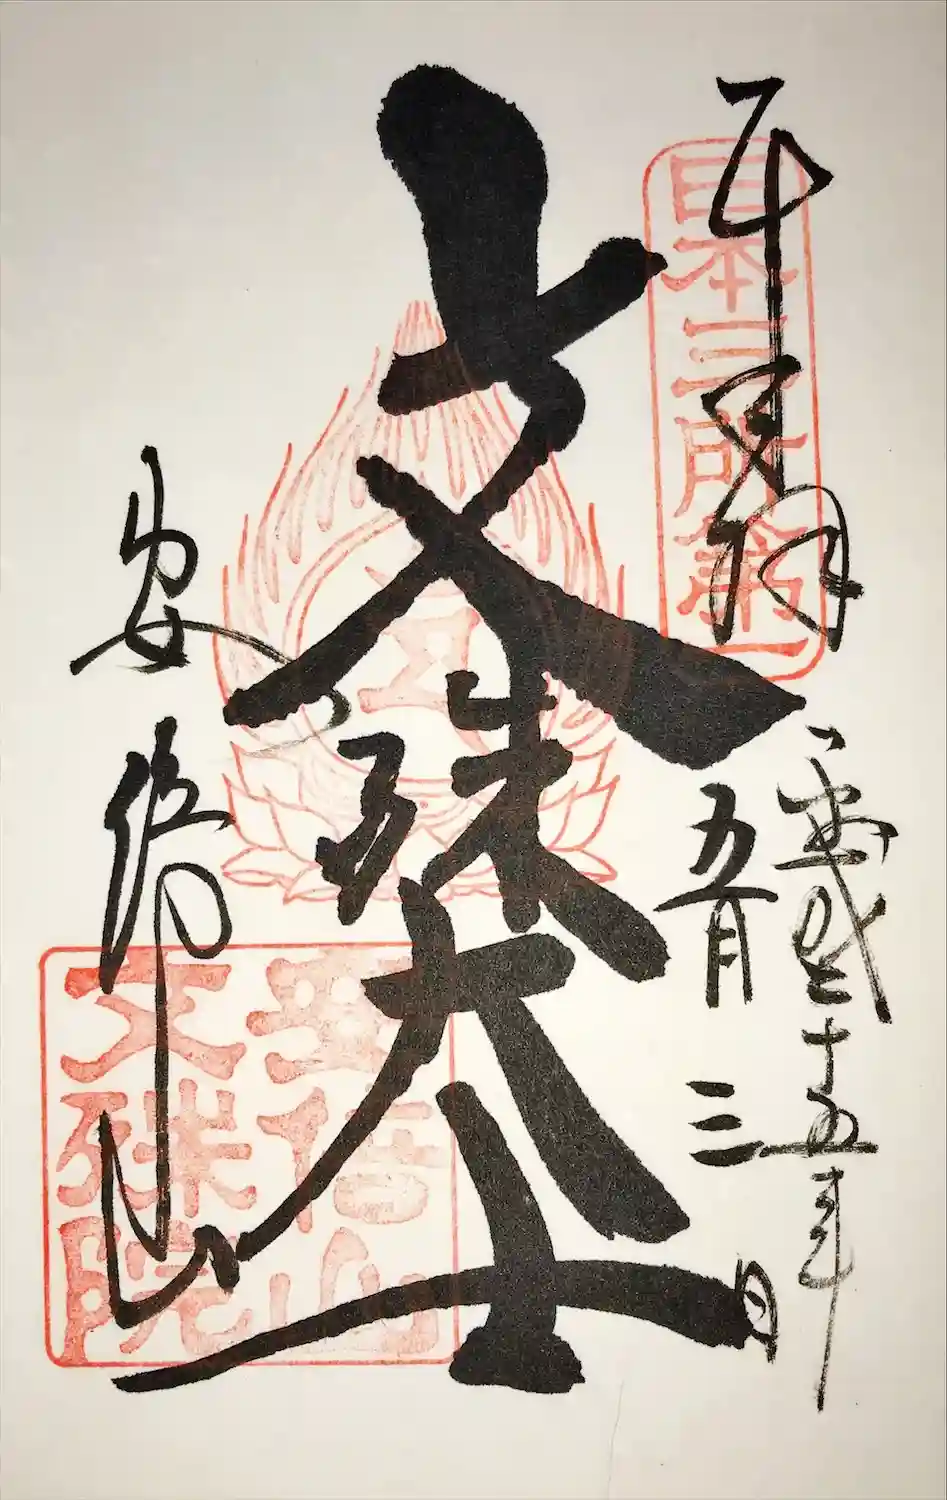 奉拝
日本三所第一
平成二十五年
五月三日
文殊大士
安倍山
安倍山
文殊院